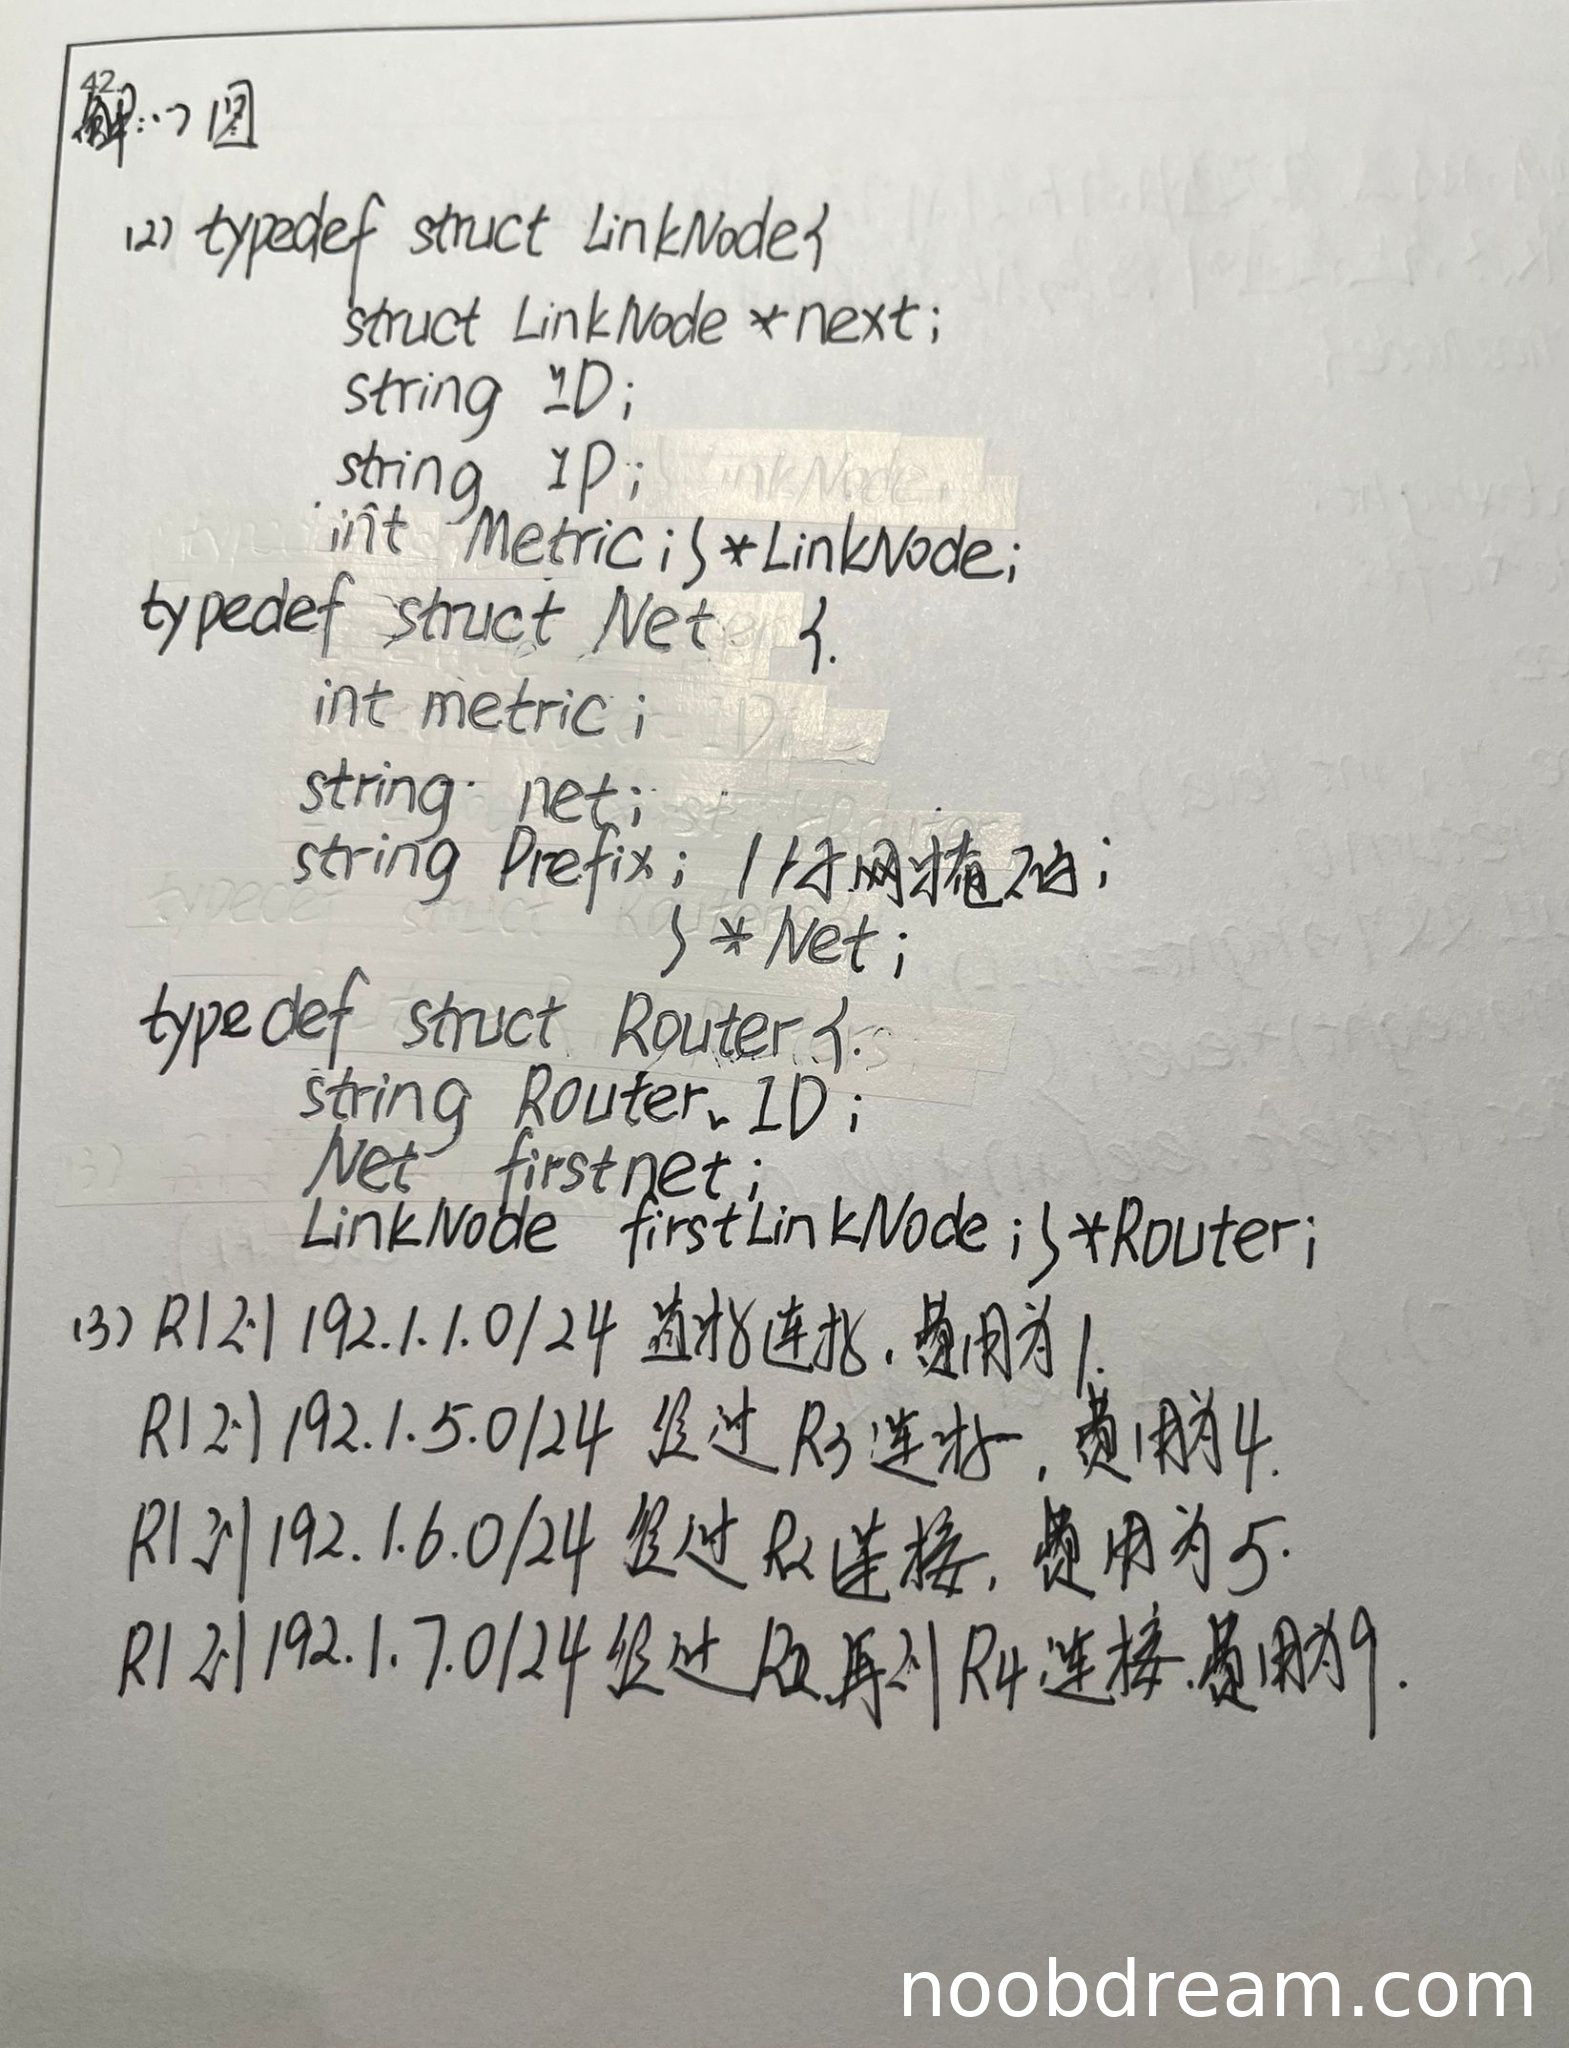 42
解:(1)图
(2) typedef struct LinkNode{
struct LinkNode *next;
string ID;
string IP;
int Metric;}*LinkNode;
typedef struct Net {
int metric;
string net;
string Prefix; //子网掩码;
}*Net;
typedef struct Router{
string Router_ID;
Net firstnet;
LinkNode firstLinkNode;}*Router;
(3) R1到192.1.1.0/24 直接连接,费用为1.
R1到192.1.5.0/24 经过R3连接,费用为4.
R1到192.1.6.0/24 经过R2连接,费用为5.
R1到192.1.7.0/24经过R2再到R4连接,费用为9.
noobdream.com